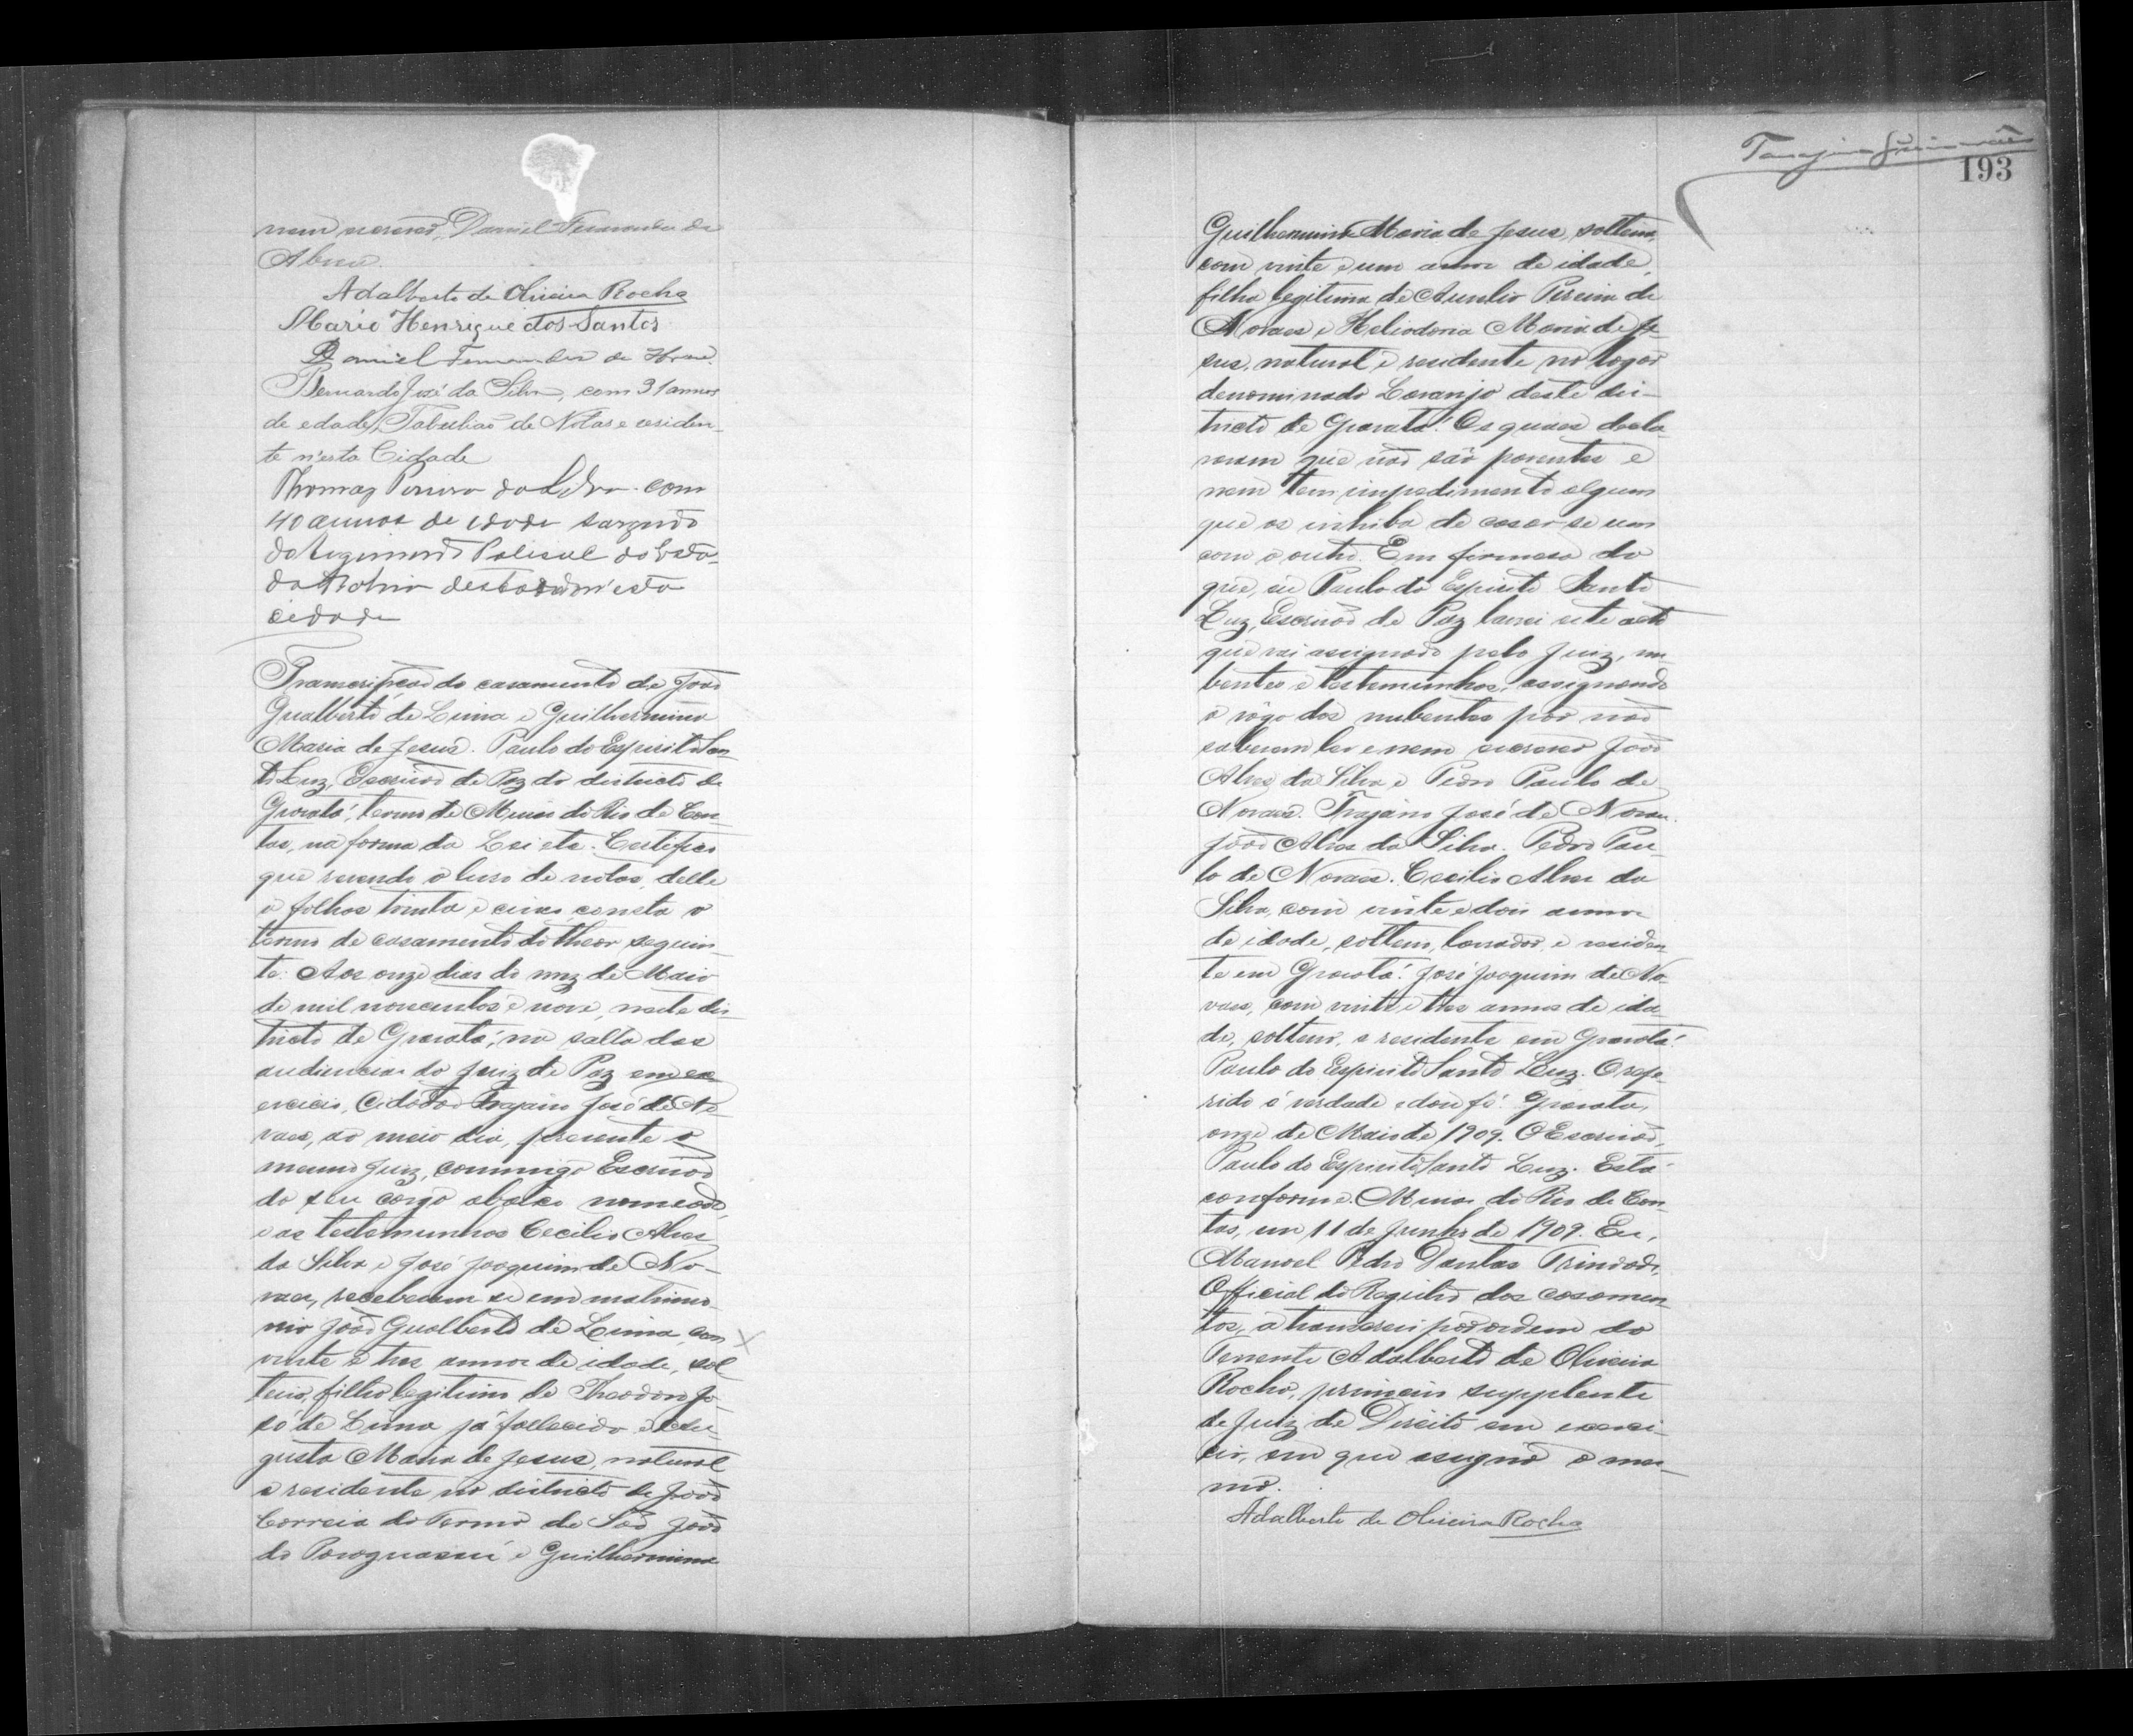 nem escrever, Daniel Fernandes de
Abreu.
Adalberto de Oliveira Rocha
Mario Henrique dos Santos
Daniel Fernandes de Abreu.
Bernardo José da Silva, com 31 annos
de edade, Tabelliaõ de Notas e residen-
te n'esta Cidade
Thomaz Pereira da Silva com
40 annos de idade sargento
do Regimento Policial do Esta-
do da Bahia destacado n'esta
cidade
Transcripçaõ do casamento de João
Gualberto de Lima e Guilhermina
Maria de Jesus. Paulo do Espirito San
to Luz, Escrivaõ de Paz do districto de
Gravatá, termo de Minas do Rio de Con-
tas, na forma da Lei etc. Certifico
que revendo o livro de notas, delle
a folhas trinta e cinco consta o
termo de casamento do theor seguin-
te: Aos onze dias do mez de Maio
de mil novecentos e nove, neste dis-
tricto de Gravatá, na salla das
audiencias do Juiz de Paz em ex
ercicio, Cidadão Trajano José de No-
vaes, ao meio dia, presente o
mesmo Juiz, commigo Escrivaõ
do seu cargo abaixo nomeado,
e as testemunhas Cecilio Alves
da Silva e José Joaquim de No-
vaes, receberam se em matrimo-
nio João Gualberto de Lima, com
vinte e tres annos de idade, sol
teiro, filho legitimo de Theodoro Jo-
sé de Lima já fallecido e Au-
gusta Maria de Jesus, natural
e residente no districto de João
Correia do Termo de São João
do Paraguassú e Guilhermina
193
Guilhermina Maria de Jesus, solteira,
com vinte e um annos de idade,
filha legitima de Aurelio Pereira de
Novaes e Heliodoria Maria de Je-
sus, natural e residente no logar
denominado Laranjo deste dis-
tricto de Gravatá. Os quaes decla-
raram que não são parentes e
nem tem impedimento algum
que os inhiba de casar-se um
com o outro. Em firmesa do
que, eu Paulo do Espirito Santo
Luz, Escrivaõ de Paz lavrei este acto
que vai assignado pelo Juiz, nu-
bentes e testemunhas, assignando
a rogo dos nubentes por não
saberem ler e nem escrever João
Alves da Silva e Pedro Paulo de
Novaes. Trajano José de Novaes.
João Alves da Silva. Pedro Pau-
lo de Novaes. Cecilio Alves da
Silva, com vinte e dois annos
de idade, solteiro, lavrador, e residen
te em Gravatá. José Joaquim de No-
vaes, com vinte e tres annos de ida-
de, solteiro, e residente em Gravatá.
Paulo do Espirito Santo Luz. O refe-
rido é verdade e dou fé. Gravatá,
onze de Maio de 1909. O Escrivaõ,
Paulo do Espirito Santo Luz. Está
conforme. Minas do Rio de Con
tas, em 11 de Junho de 1909. Eu,
Manoel Pedro Dantas Trindade,
Official do Registro dos casamen
tos, a transcrevi por ordem do
Tenente Adalberto de Oliveira
Rocha, primeiro supplente
de Juiz de Direito em exerci-
cio, em que assigna o mes-
mo.
Adalberto de Oliveira Rocha